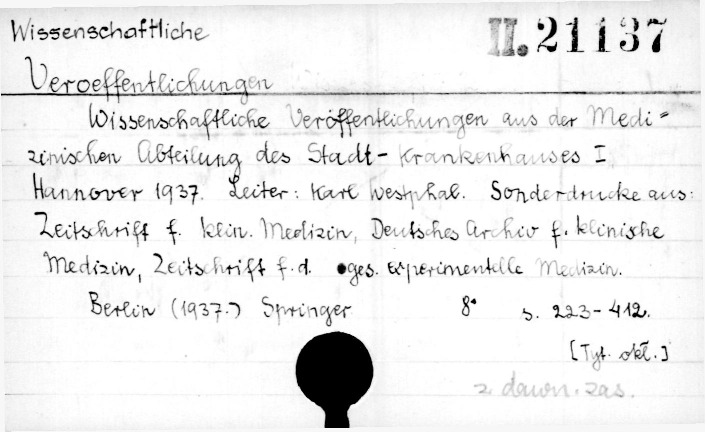 Wissenschaftliche II. 21137
Veroeffentlichungen
Wissenschaftliche Veröffentlichungen aus der Medi=
zinischen Abteilung des Stadt-Krankenhauses I
Hannover 1937. Leiter: Karl Westphal. Sonderdrucke aus:
Zeitschrift f. klin. Medizin, Deutsches Archiv f. klinische
Medizin, Zeitschrift f. d. ges. experimentelle Medizin.
Berlin (1937.) Springer 8° s. 223-412.
[Tyt. okł.]
z dawn. zas.